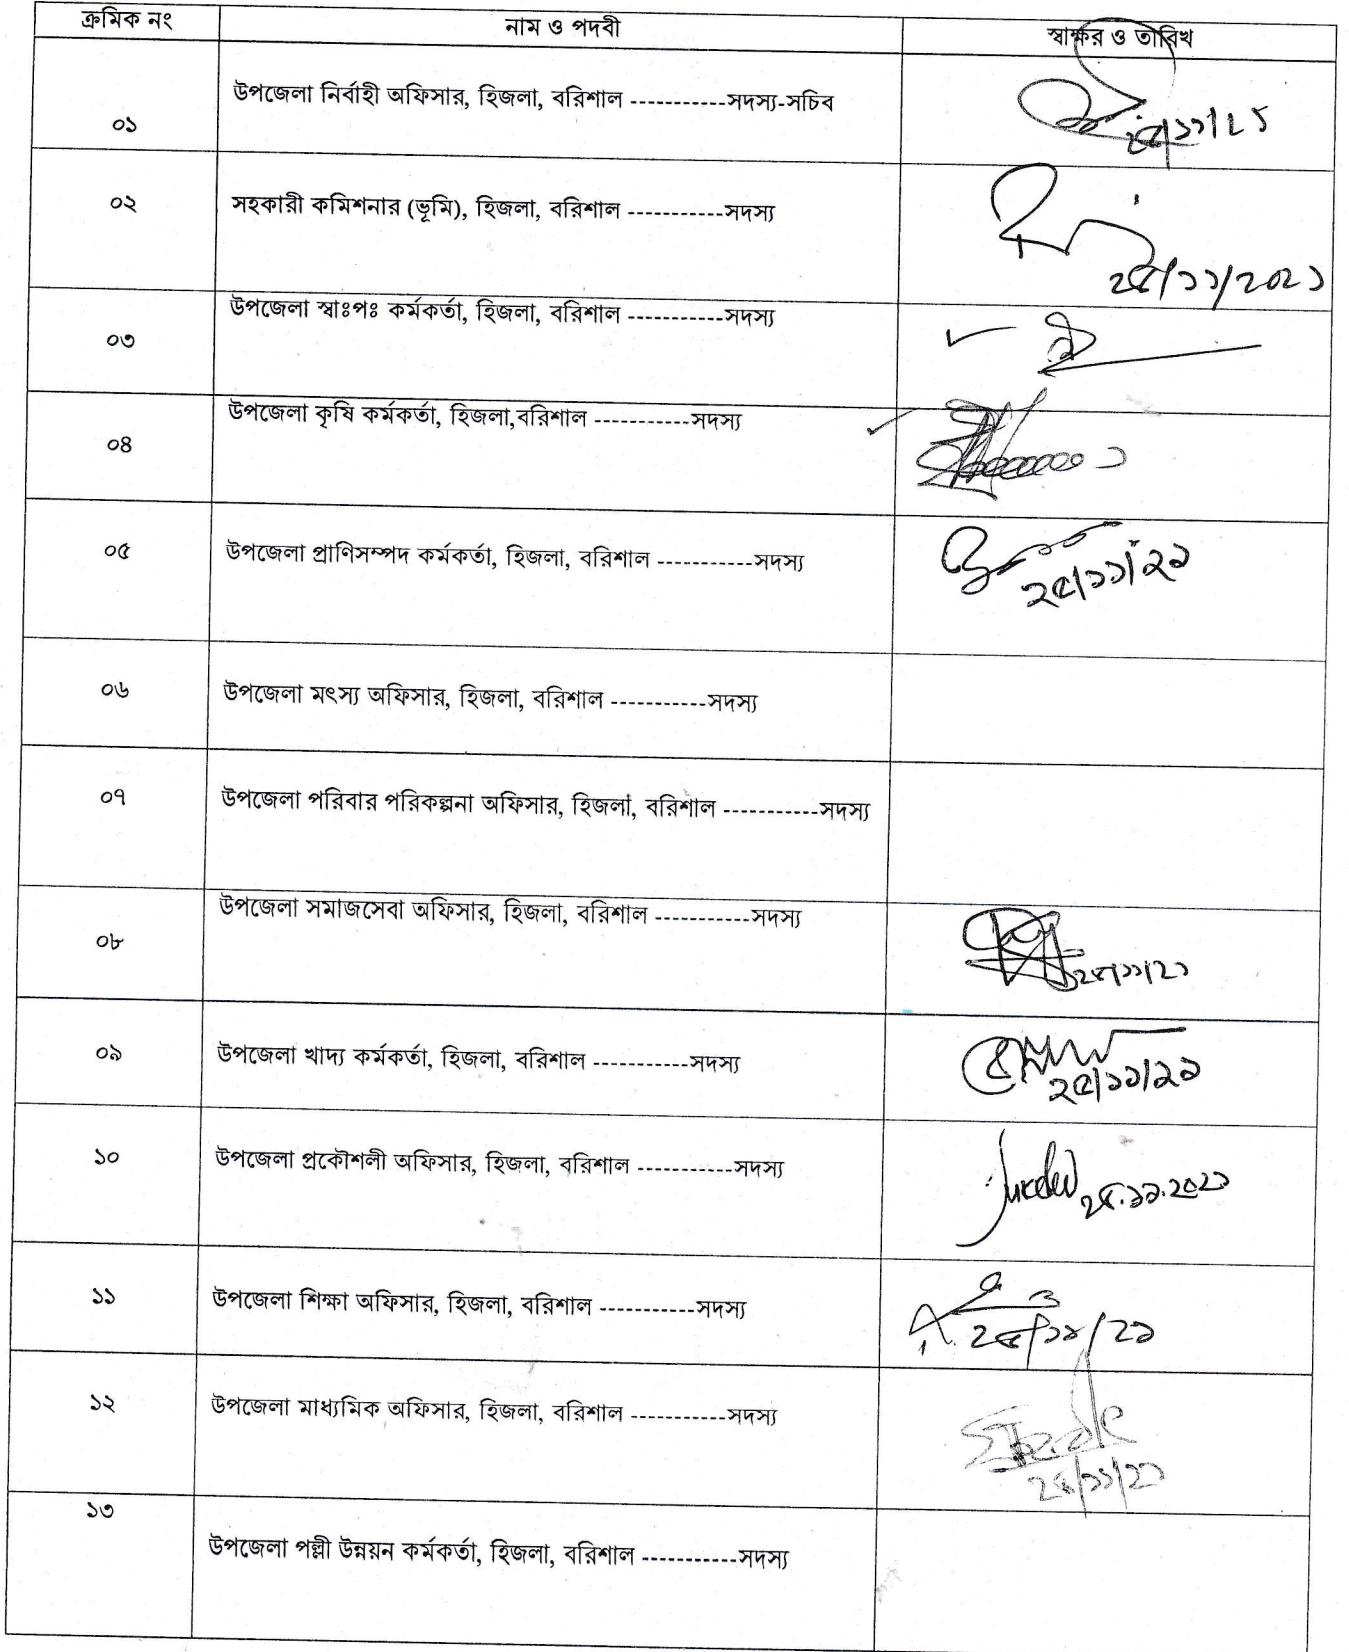 ক্রমিক নং নাম ও পদবী স্বাক্ষর ও তারিখ
০১ উপজেলা নির্বাহী অফিসার, হিজলা, বরিশাল -----------সদস্য-সচিব
০২ সহকারী কমিশনার (ভূমি), হিজলা, বরিশাল -----------সদস্য ২৫/১১/২০২১
০৩ উপজেলা স্বাঃপঃ কর্মকর্তা, হিজলা, বরিশাল -----------সদস্য
০৪ উপজেলা কৃষি কর্মকর্তা, হিজলা,বরিশাল -----------সদস্য
০৫ উপজেলা প্রাণিসম্পদ কর্মকর্তা, হিজলা, বরিশাল -----------সদস্য ২৫/১১/২১
০৬ উপজেলা মৎস্য অফিসার, হিজলা, বরিশাল -----------সদস্য
০৭ উপজেলা পরিবার পরিকল্পনা অফিসার, হিজলা, বরিশাল -----------সদস্য
০৮ উপজেলা সমাজসেবা অফিসার, হিজলা, বরিশাল -----------সদস্য ২৫/১১/২১
০৯ উপজেলা খাদ্য কর্মকর্তা, হিজলা, বরিশাল -----------সদস্য ২৫/১১/২১
১০ উপজেলা প্রকৌশলী অফিসার, হিজলা, বরিশাল -----------সদস্য ২৫.১১.২০২১
১১ উপজেলা শিক্ষা অফিসার, হিজলা, বরিশাল -----------সদস্য ২৫/১১/২১
১২ উপজেলা মাধ্যমিক অফিসার, হিজলা, বরিশাল -----------সদস্য ২৫/১১/২১
১৩ উপজেলা পল্লী উন্নয়ন কর্মকর্তা, হিজলা, বরিশাল -----------সদস্য